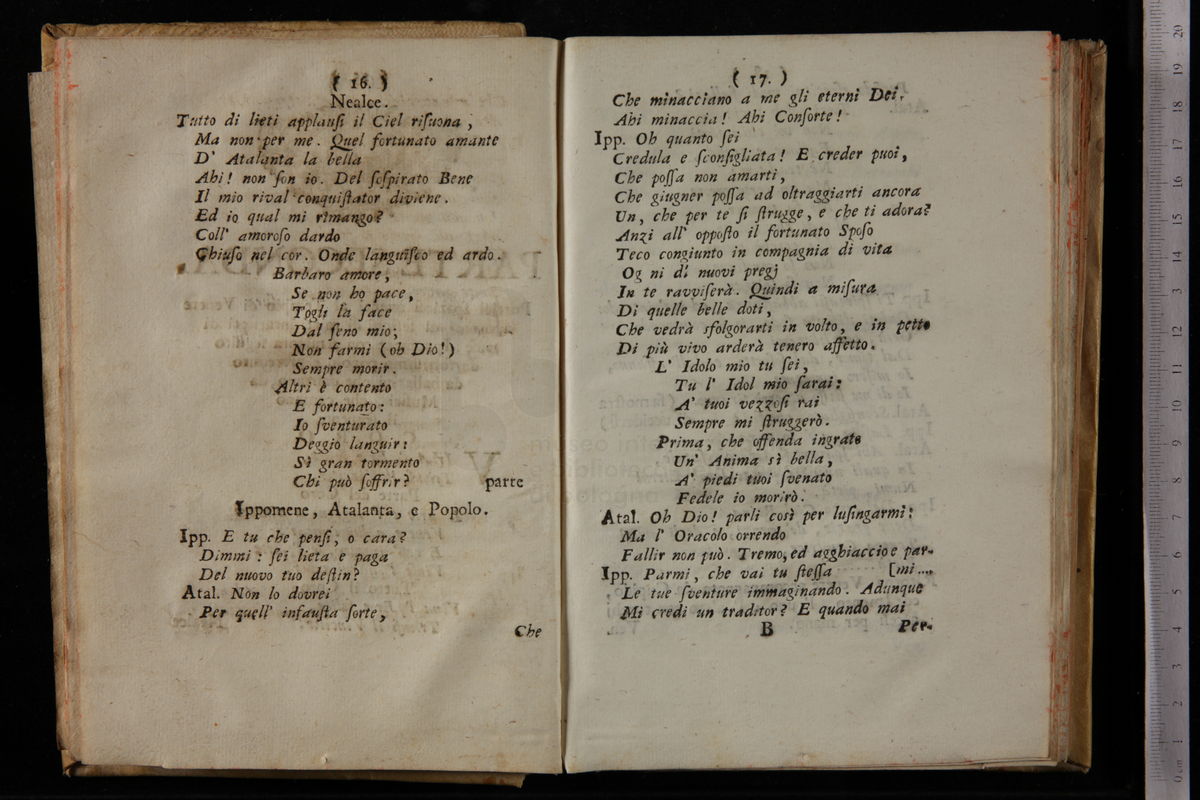 ( 16. )
Nealce.
Tutto di lieti applauſi il Ciel riſuona ,
Ma non per me . Quel fortunato amante
D' Atalanta la bella
Ahi ! non ſon io . Del ſoſpirato Bene
Il mio rival conquiſtator diviene .
Ed io qual mi rimango ?
Coll' amoroſo dardo
Chiuſo nel cor . Onde languiſco ed ardo .
Barbaro amore ,
Se non ho pace ,
Togli la face
Dal ſeno mio ;
Non farmi ( oh Dio ! )
Sempre morir .
Altri è contento
E fortunato :
Io ſventurato
Deggio languir :
Sì gran tormento
Chi può ſoffrir ? parte
Ippomene , Atalanta , e Popolo .
Ipp. E tu che penſi , o cara ?
Dimmi : ſei lieta e paga
Del nuovo tuo deſtin ?
Atal. Non lo dovrei
Per quell' infauſta ſorte ,
Che
( 17. )
Che minacciano a me gli eterni Dei .
Ahi minaccia ! Ahi Conſorte !
Ipp. Oh quanto ſei
Credula e ſconſigliata ! E creder puoi ,
Che poſſa non amarti ,
Che giugner poſſa ad oltraggiarti ancora
Un , che per te ſi ſtrugge , e che ti adora ?
Anzi all' oppoſto il fortunato Spoſo
Teco congiunto in compagnia di vita
Og ni dì nuovi pregj
In te ravviſerà . Quindi a miſura
Di quelle belle doti ,
Che vedrà sfolgorarti in volto , e in petto
Di più vivo arderà tenero affetto .
L' Idolo mio tu ſei ,
Tu l' Idol mio ſarai :
A' tuoi vezzoſi rai
Sempre mi ſtruggerò .
Prima , che offenda ingrato
Un' Anima sì bella ,
A' piedi tuoi ſvenato
Fedele io morirò .
Atal. Oh Dio ! parli così per luſingarmi :
Ma l' Oracolo orrendo
Fallir non può . Tremo , ed agghiaccio e par-
Ipp. Parmi , che vai tu ſteſſa [mi ....
Le tue ſventure immaginando . Adunque
Mi credi un traditor ? E quando mai
B Per-